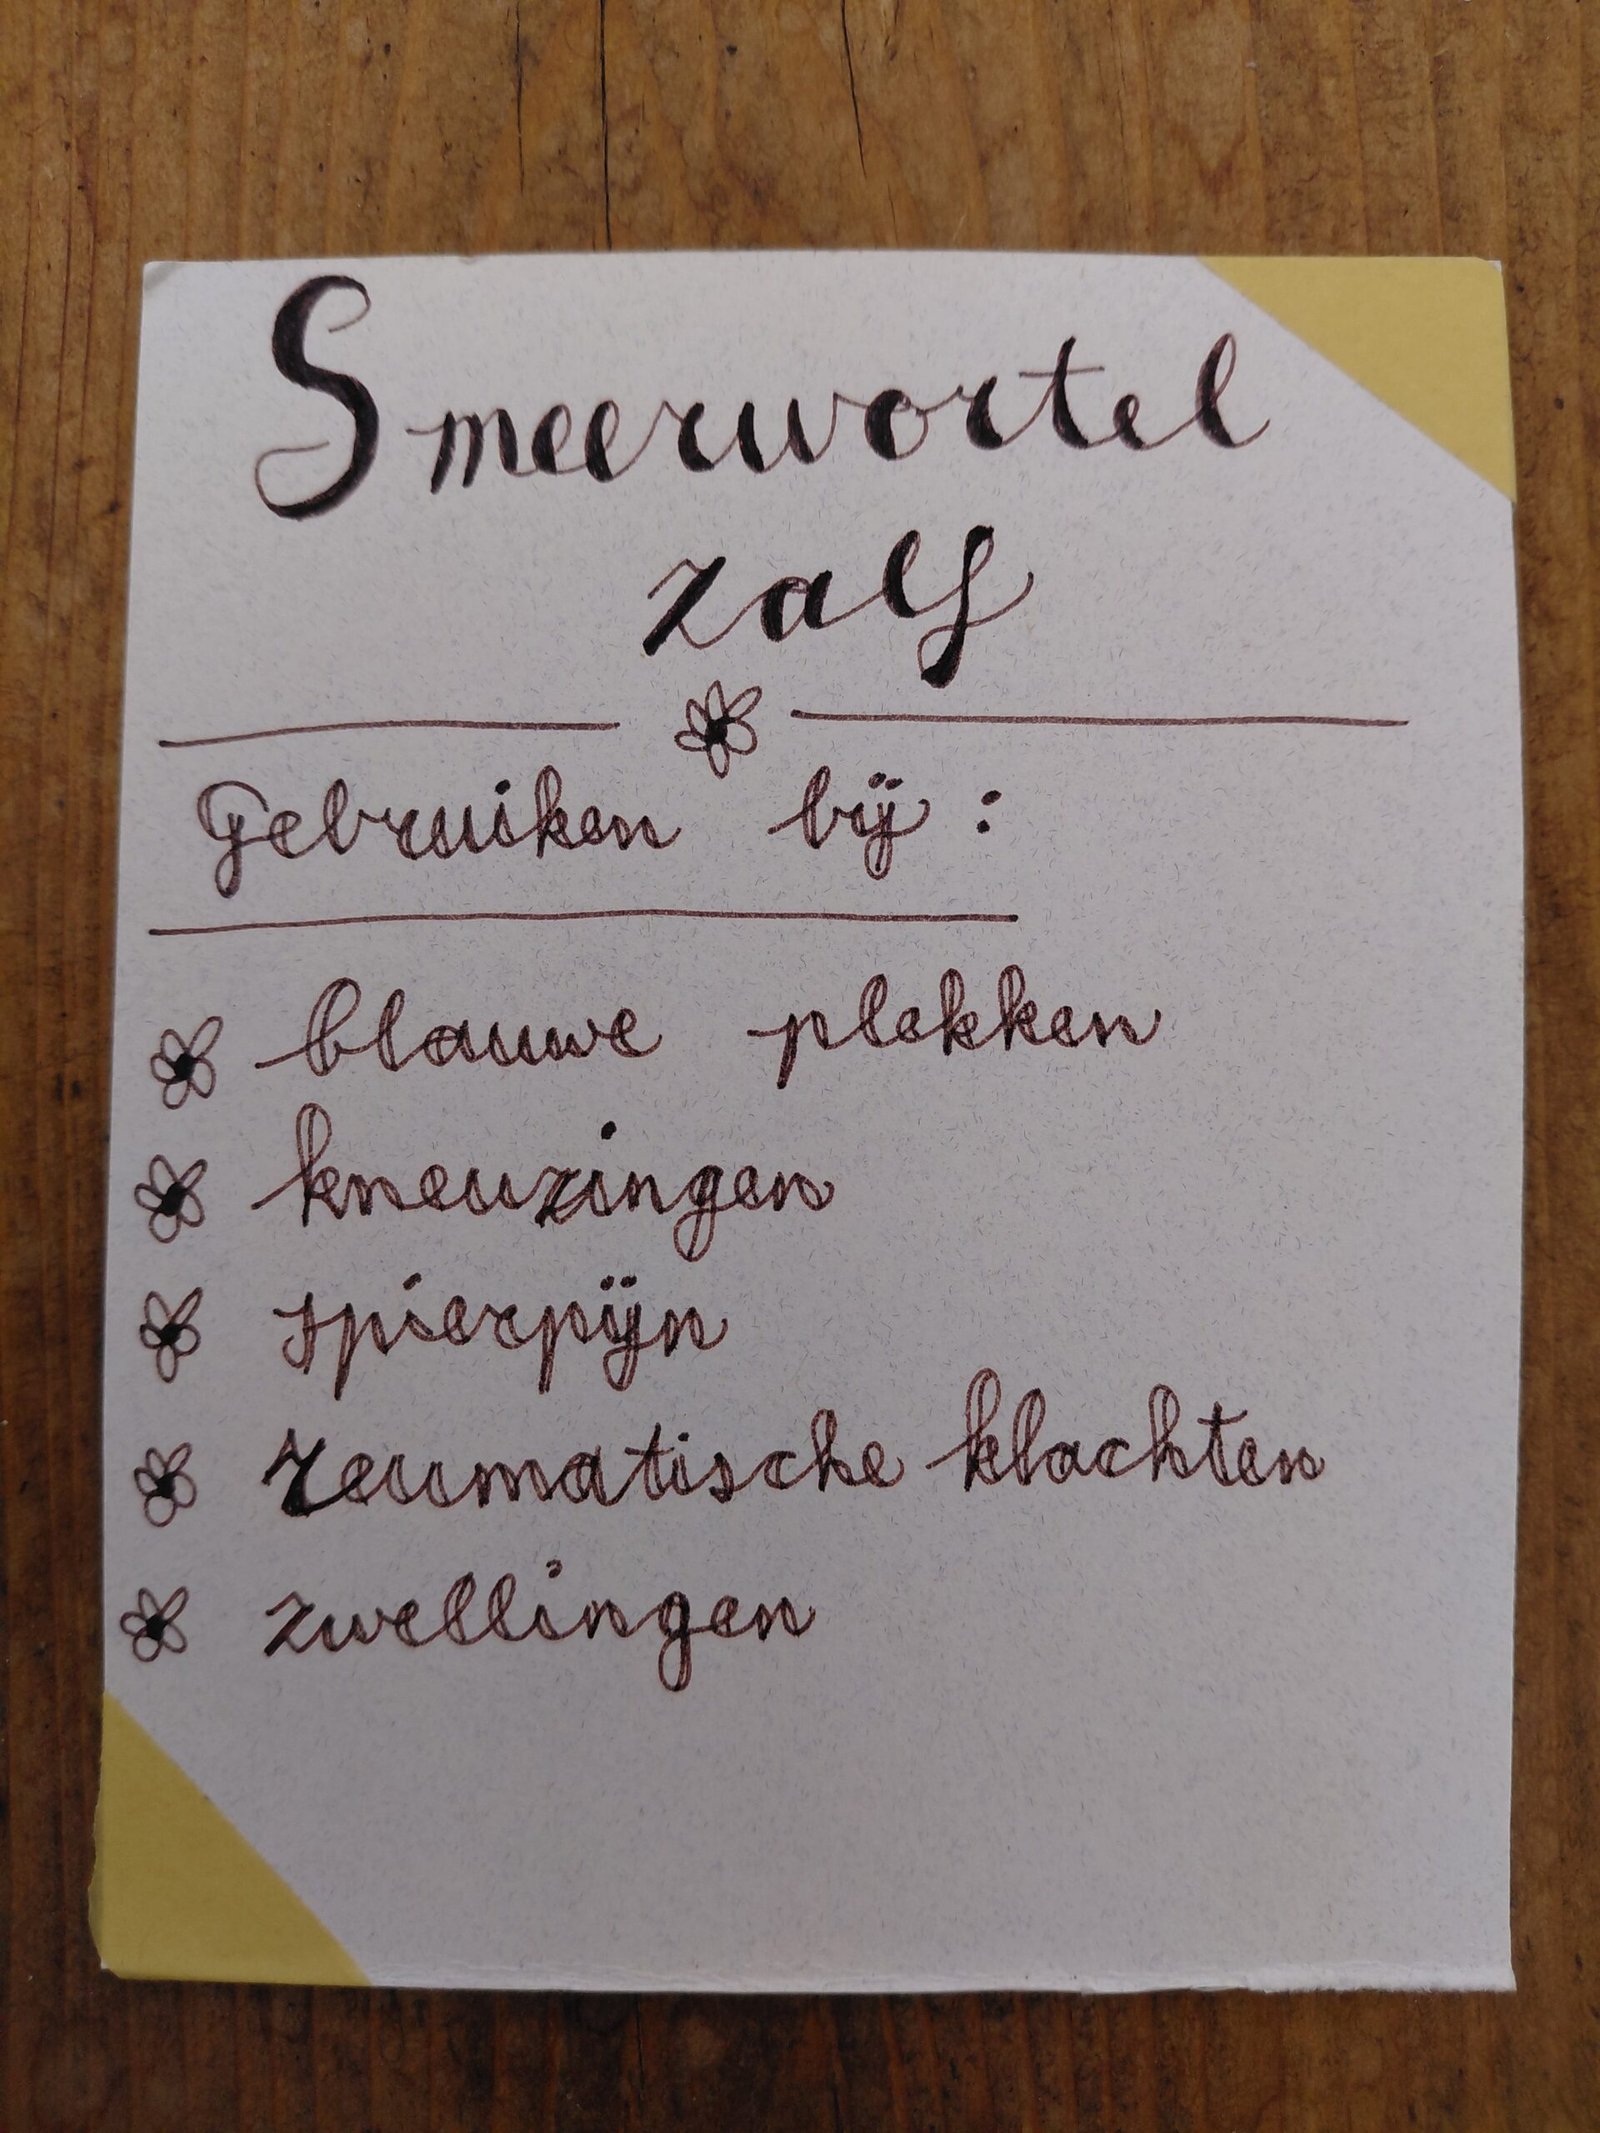 Smeerwortel
zalf
Gebruiken bij :
blauwe plekken
kneuzingen
spierpijn
reumatische klachten
zwellingen